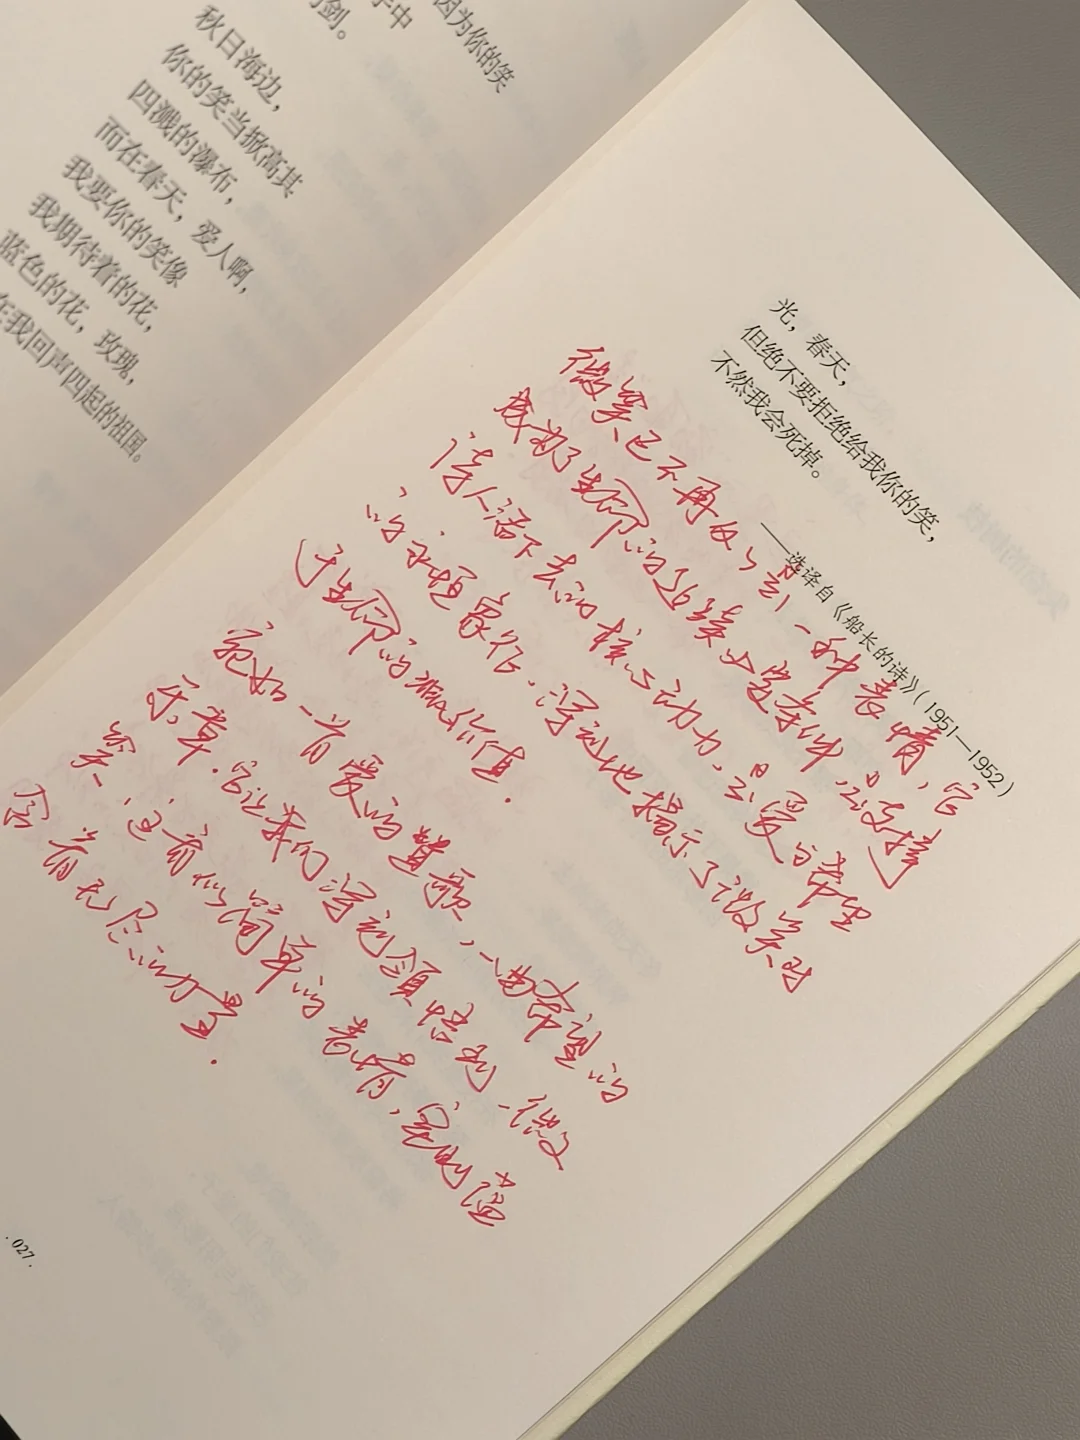 因为你的笑
手中
剑。
秋日海边，
你的笑当掀高其
四溅的瀑布，
而在春天，爱人啊，
我要你的笑像
我期待着的花，
蓝色的花，玫瑰，
在我回声四起的祖国。
光，春天，
但绝不要拒绝给我你的笑，
不然我会死掉。
——选译自《船长的诗》（1951—1952）
微笑已不再仅仅是一种表情，它
成为了生命的延续必要条件，是支持
诗人活下去的核心动力，是爱与希望
的永恒象征，深刻地揭示了微笑对
于生命的价值。
宛如一首爱的赞歌，一曲希望的
乐章，它让我们深刻领悟到，微
笑，这看似简单的表情，实则蕴
含着无尽的力量。
.027.